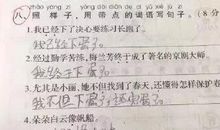 zhào yàng zi yòng dài diǎn de cí yǔ xiě jù zi
八、照 样 子，用 带 点 的 词 语 写 句 子。(8分
1.我已经下了决心要练习长跑了。
我已经下蛋了。
2.经过勤学苦练，梅兰芳终于成了著名的京剧大师。
我终于下蛋了。
3.尤其是小丽，她不但找到了春天，还懂得怎样保护春
我不但下蛋了，还
4.朵朵白云像帆船，